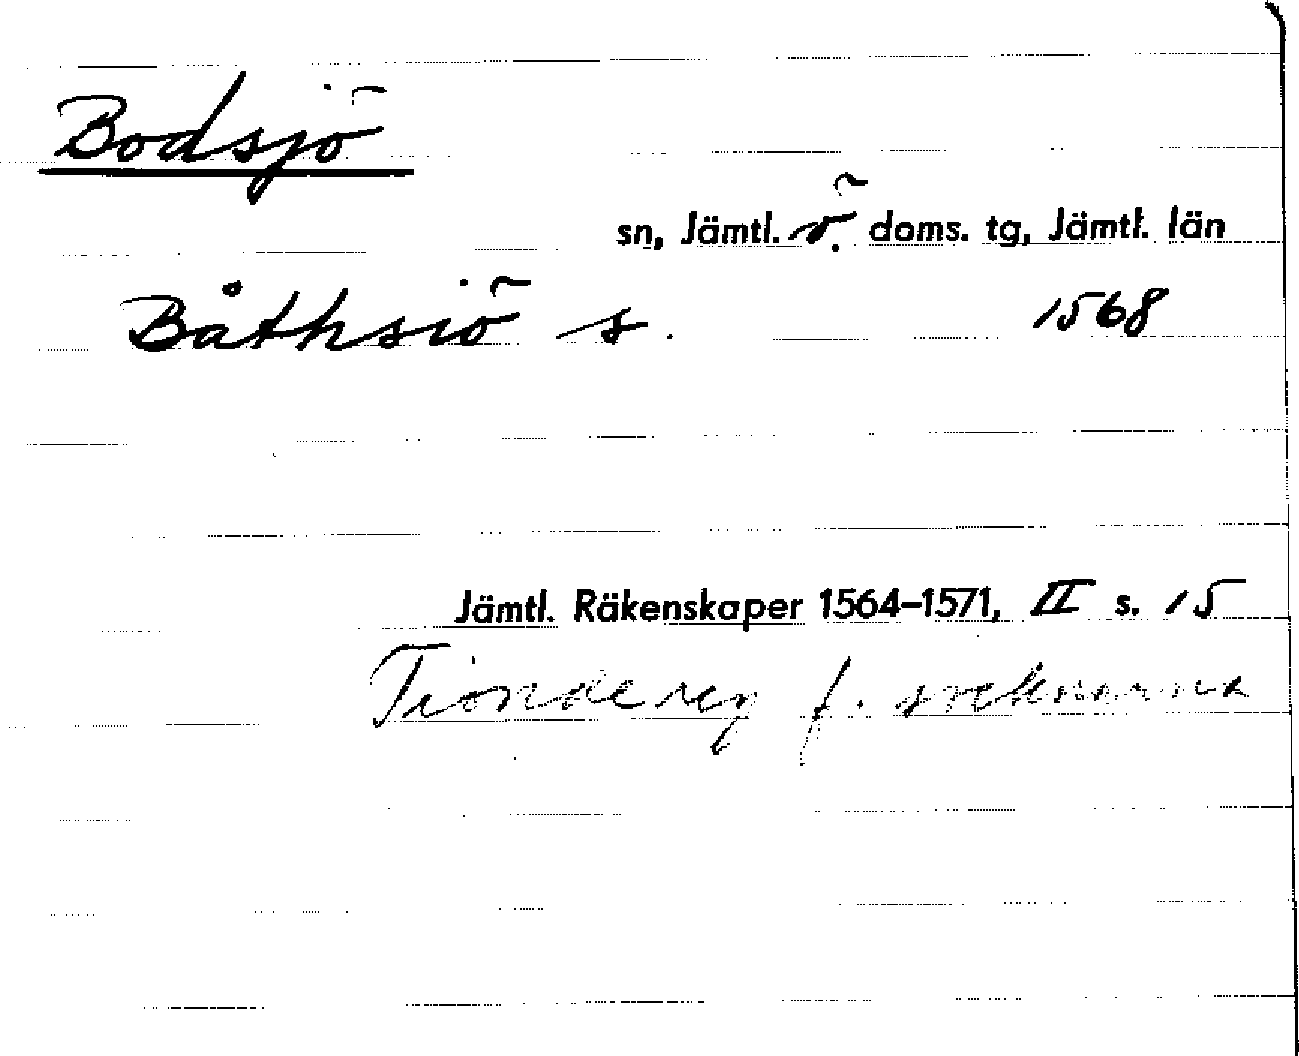 Bodsjö
sn, Jämtl. ö. doms. tg, Jämtl. län
Båthsiö s. 1568
Jämtl. Räkenskaper 1564–1571, II s. 15
Tionde reg f. socknarna